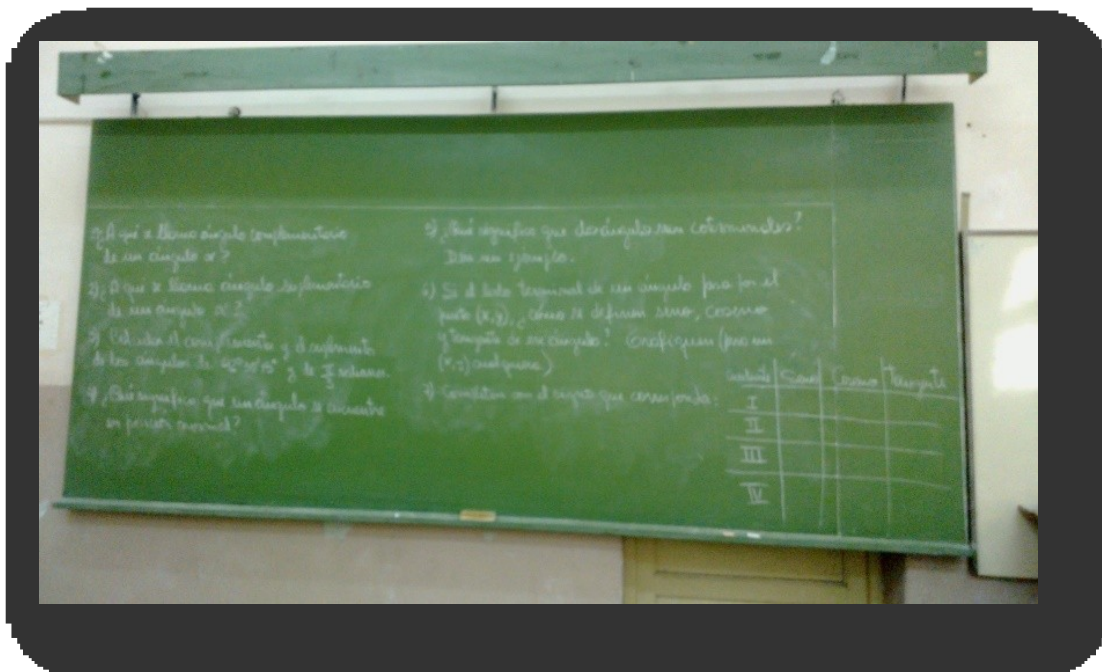 1) ¿A qué se llama ángulo complementario
de un ángulo α?
2) ¿A qué se llama ángulo suplementario
de un ángulo α?
3) Calculen el complemento y el suplemento
de los ángulos de y de π/5 radianes
4) ¿Qué significa que un ángulo se encuentre
en posición normal?
5) ¿Qué significa que dos ángulos sean coterminales?
Den un ejemplo.
6) Si el lado terminal de un ángulo pasa por el
punto (x,y), ¿cómo se definen seno, coseno
y tangente de ese ángulo? Grafiquen (para un
(x,y) cualquiera)
7) Completen con el signo que corresponda:
Cuadrante Seno Coseno Tangente
I
II
III
IV